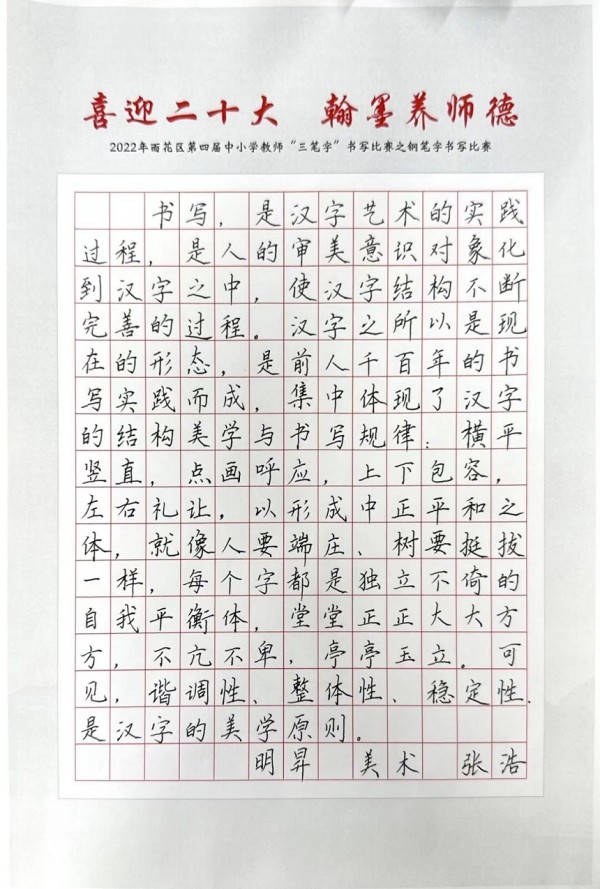 喜迎二十大 翰墨养师德
2022年雨花区第四届中小学教师“三笔字”书写比赛之钢笔字书写比赛
书写，是汉字艺术的实践
过程，是人的审美意识对象化
到汉字之中，使汉字结构不断
完善的过程。汉字之所以是现
在的形态，是前人千百年的书
写实践而成，集中体现了汉字
的结构美学与书写规律：横平
竖直，点画呼应，上下包容，
左右礼让，以形成中正平和之
体，就像人要端庄、树要挺拔
一样，每个字都是独立不倚的
自我平衡体，堂堂正正大大方
方，不亢不卑，亭亭玉立。可
见，谐调性、整体性、稳定性、
是汉字的美学原则。
明昇 美术 张浩